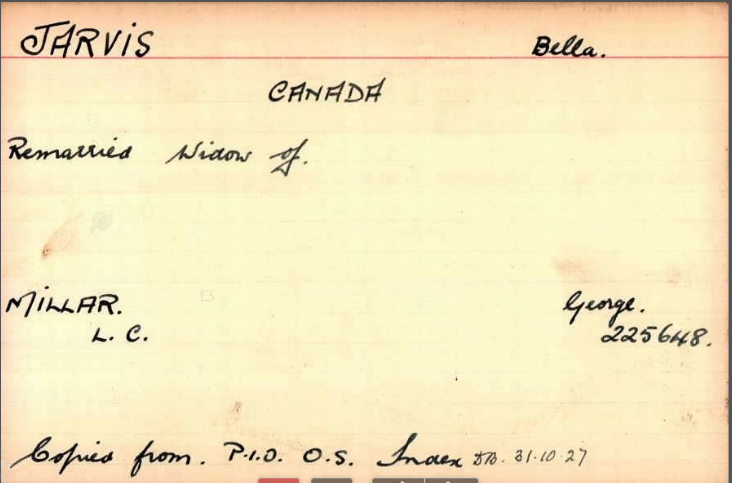 JARVIS Bella.
CANADA
Remarried Widow of.
MILLAR. George.
L. C. 225648.
Copied from. P.I.O. O.S. Index 31.10.27